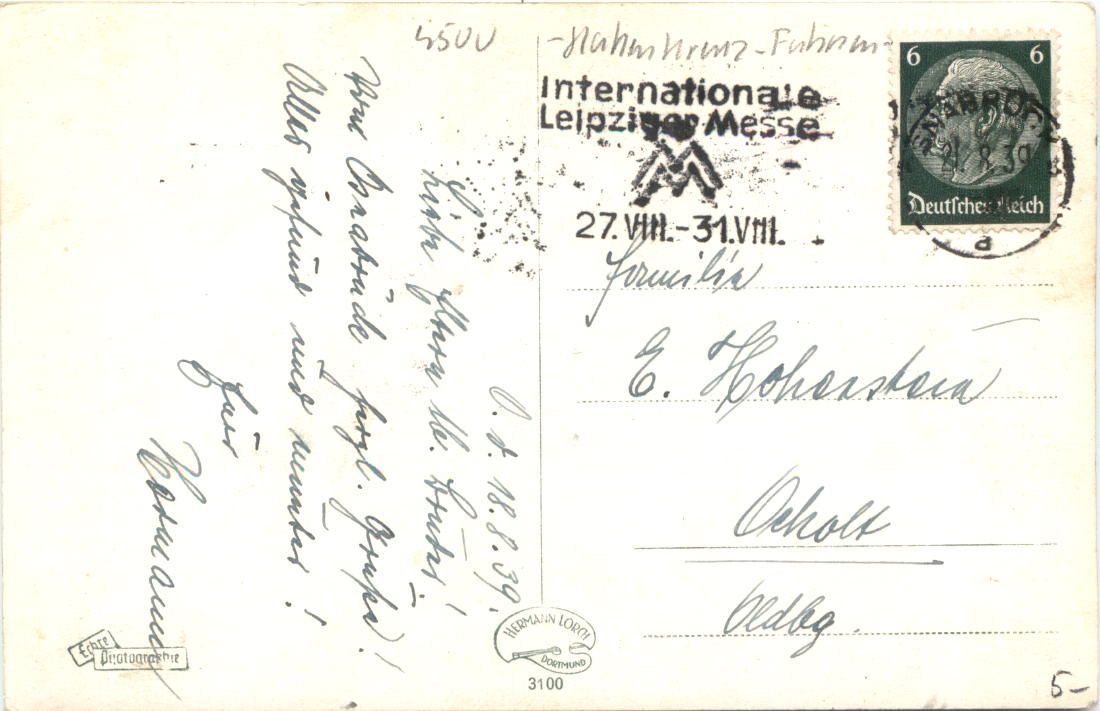 4500
-Hakenkreuz-Fahnen-
Internationale
Leipziger Messe
M M
27.VIII.-31.VIII.
6 6
Deutsches Reich
OSNABRÜCK
21.8.39
a
O. d. 18.8.39.
Liebe Eltern u. Bruder!
Von Osnabrück herzl. Grüße!
Alles gesund und munter!
Euer
Hermann
Familie
E. Hohenstein
Ocholt
Oldbg.
Echte
Photographie
HERMANN LORCH
DORTMUND
3100
5-